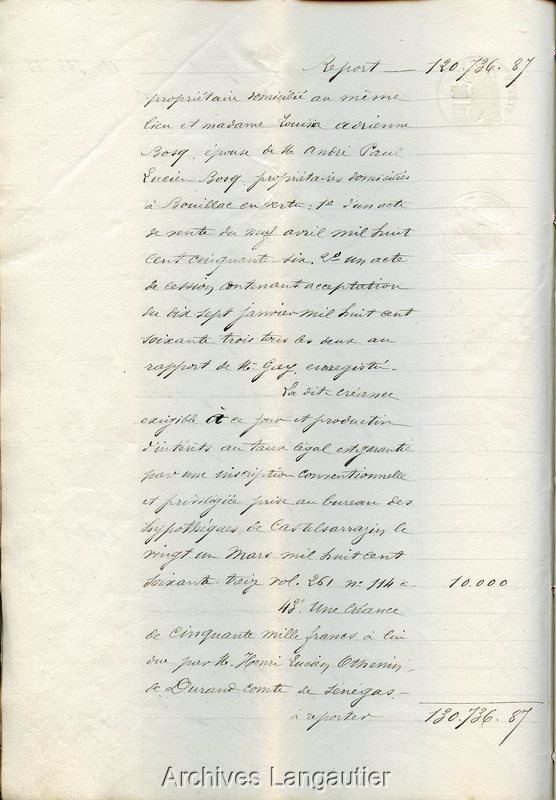 Report — 120.736.87
propriétaire domicilié au même
lieu et madame Louisa Adrienne
Bosq, épouse de M. André Paul
Lucien Bosq propriétaires domiciliés
à Bouillac en vertu: 1° d'un acte
de vente du neuf avril mil huit
cent cinquante six. 2° un acte
de cession contenant acceptation
du dix sept janvier mil huit cent
soixante trois tous les deux au
rapport de Me Gay, enregistré.
La dite créance
exigible à ce jour et productive
d'intérêts au taux légal est garantie
par une inscription conventionnelle
et privilégiée prise au bureau des
hypothèques de Castelsarrazin le
vingt un Mars mil huit cent
soixante treize vol. 261 n° 114 c 10.000
43° Une Créance
de cinquante mille francs à lui
due par M. Henri Lucien Othenin
de Durand comte de Sénégas —
à reporter 130.736.87
Archives Langautier